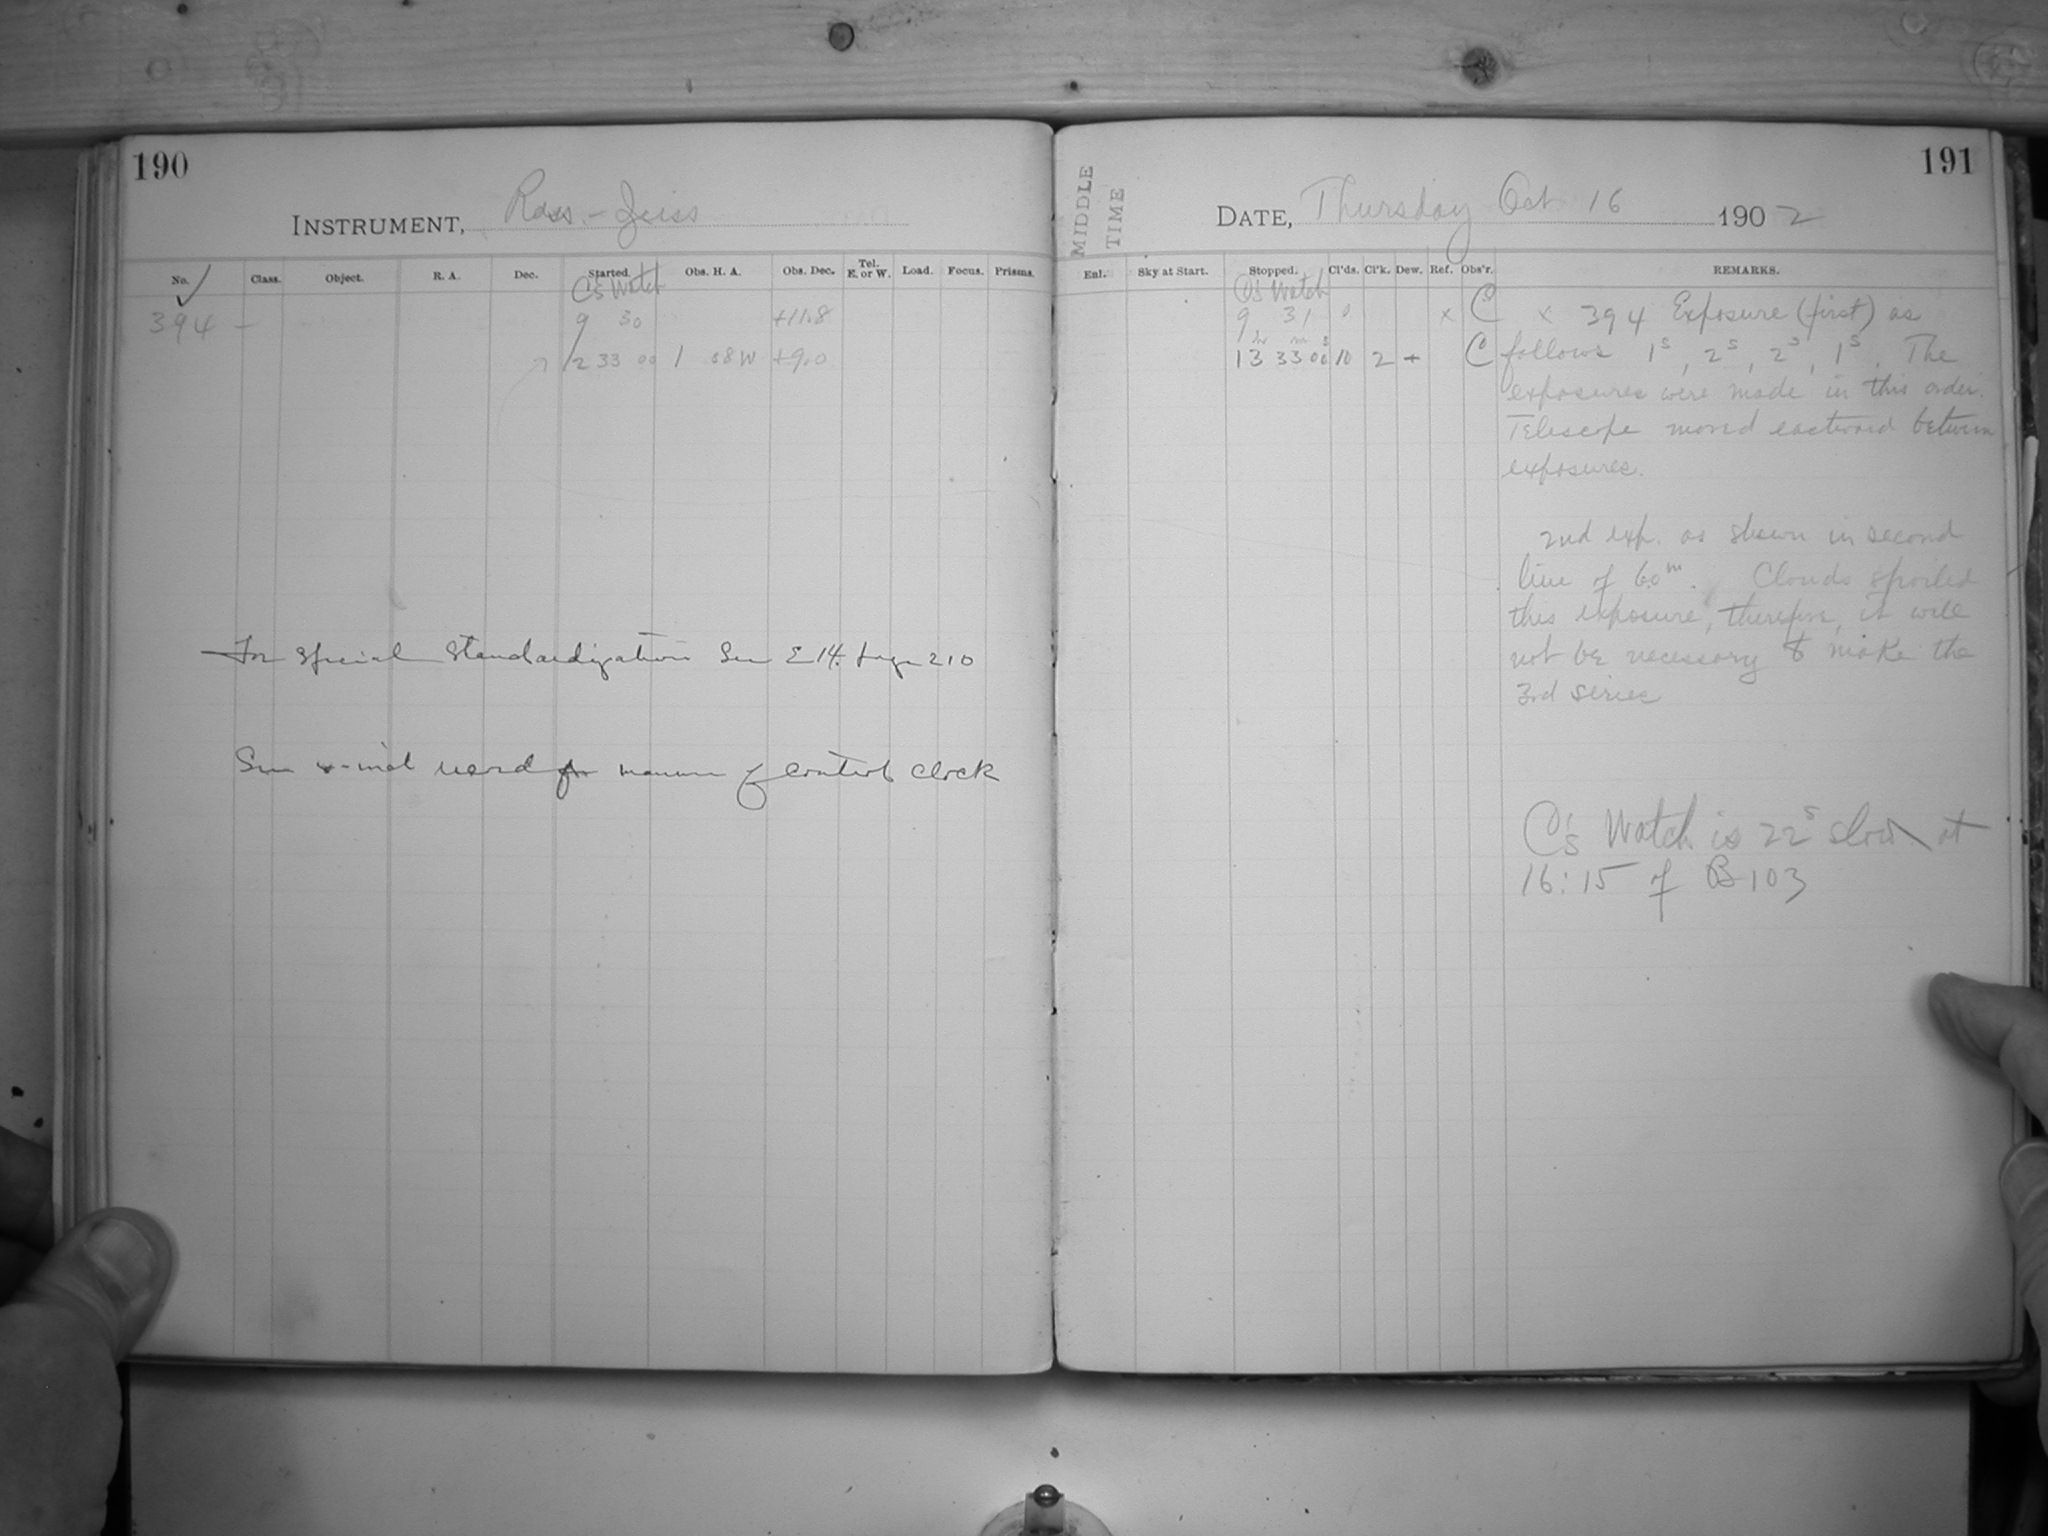 190
INSTRUMENT, Ross-Zeiss
No. Class. Object. R. A. Dec. Started. Obs. H. A. Obs. Dec. Tel. E. or W. Load. Focus. Prisms.
C's Watch
394 - 9 30 +11.8
12 33 00 1 58 W +9.0
For Special Standardization See E 14. page 210
See record for manner of control clock
191
MIDDLE
TIME
DATE, Thursday Oct 16 1902
Enl. Sky at Start. Stopped. Cl'ds. Cl'k. Dew. Ref. Obs'r. REMARKS.
C's Watch
9 31 0 x C x 394 Exposure (first) as
h m s
13 33 00 10 2 + C follows 1s, 2s, 2s, 1s. The
exposures were made in this order.
Telescope moved eastward between
exposures.
2nd exp. as shown in second
line of 60m. Clouds spoiled
this exposure, therefore, it will
not be necessary to make the
3rd series
C's Watch is 22s slow at
16:15 of B 103